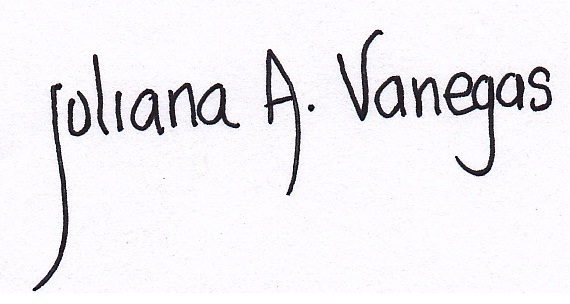 Juliana A. Vanegas